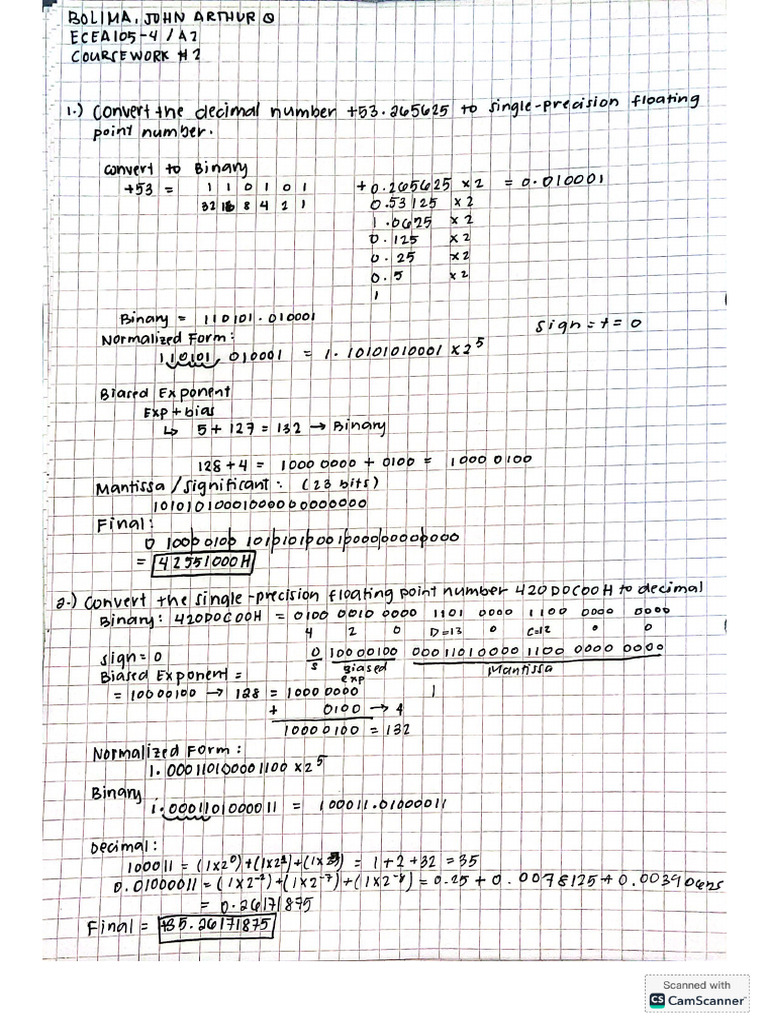 BOLIMA, JOHN ARTHUR Q
ECEA105-4 / A2
COURSEWORK #2
1.) Convert the decimal number +53.265625 to single-precision floating
point number.
Convert to Binary
+53 = 1 1 0 1 0 1
32 16 8 4 2 1
+0.265625 x2 = 0.010001
0.53125 x2
1.0625 x2
0.125 x2
0.25 x2
0.5 x2
1
Binary = 110101.010001
Sign = + = 0
Normalized Form:
110101.010001 = 1.10101010001 x 2^5
Biased Exponent
Exp + bias
↳ 5 + 127 = 132 → Binary
128 + 4 = 1000 0000 + 0100 = 1000 0100
Mantissa / Significant: (23 bits)
10101010001000000000000
Final:
0 10000100 10101010001000000000000
= 42551000H
2.) Convert the single-precision floating point number 420D0C00H to decimal
Binary: 420D0C00H = 0100 0010 0000 1101 0000 1100 0000 0000
4 2 0 D=13 0 C=12 0 0
Sign = 0
0 10000100 00011010000 1100 0000 0000
S Biased exp Mantissa
Biased Exponent =
= 10000100 → 128 = 1000 0000
+ 0100 → 4
10000100 = 132
Normalized Form:
1.000110100001100 x 2^5
Binary
1.0001101000011 = 100011.01000011
Decimal:
100011 = (1x2^0)+(1x2^1)+(1x2^5) = 1+2+32 = 35
0.01000011 = (1x2^-2)+(1x2^-7)+(1x2^-8) = 0.25 + 0.0078125 + 0.00390625
= 0.26171875
Final = +35.26171875
Scanned with
CS CamScanner